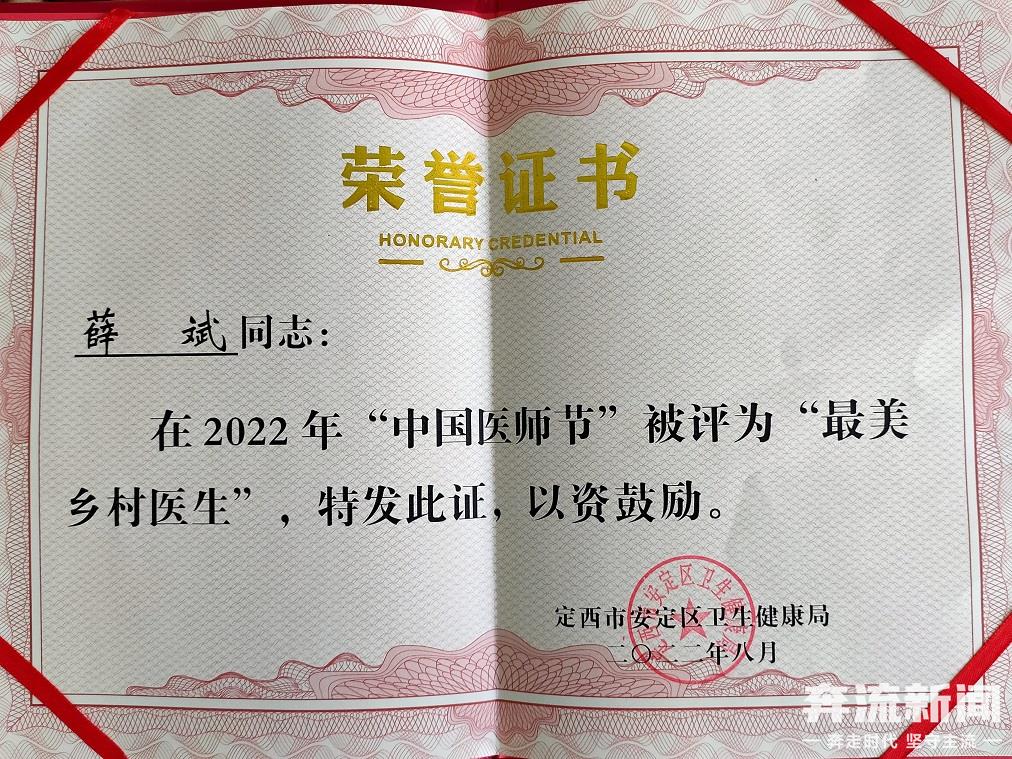 荣誉证书
HONORARY CREDENTIAL
薛 斌 同志：
在 2022 年“中国医师节”被评为“最美
乡村医生”，特发此证，以资鼓励。
定西市安定区卫生健康局
二〇二二年八月
定西市安定区卫生健康局
奔流新闻
奔走时代 坚守主流